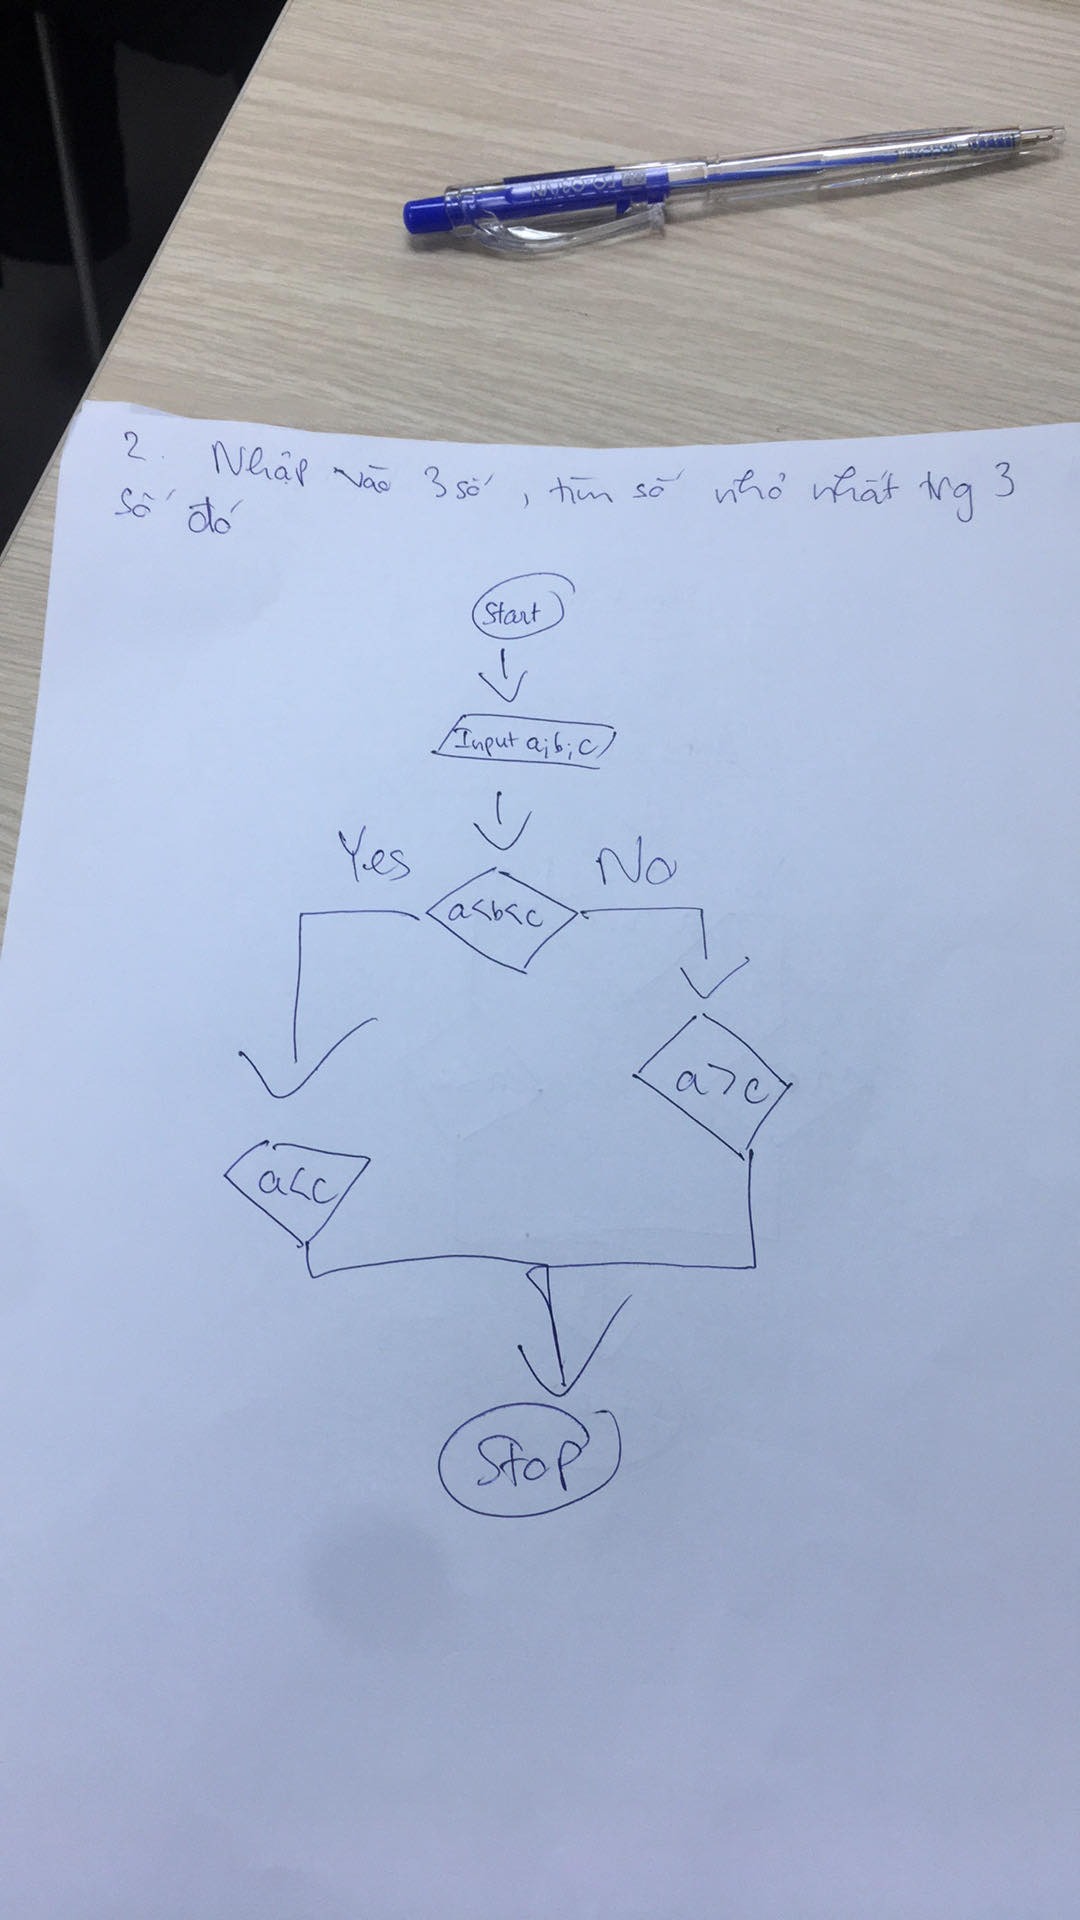 2. Nhập vào 3 số, tìm số nhỏ nhất trg 3
số đó
Start
Input a;b;c
Yes
No
a<b<c
a>c
a<c
Stop